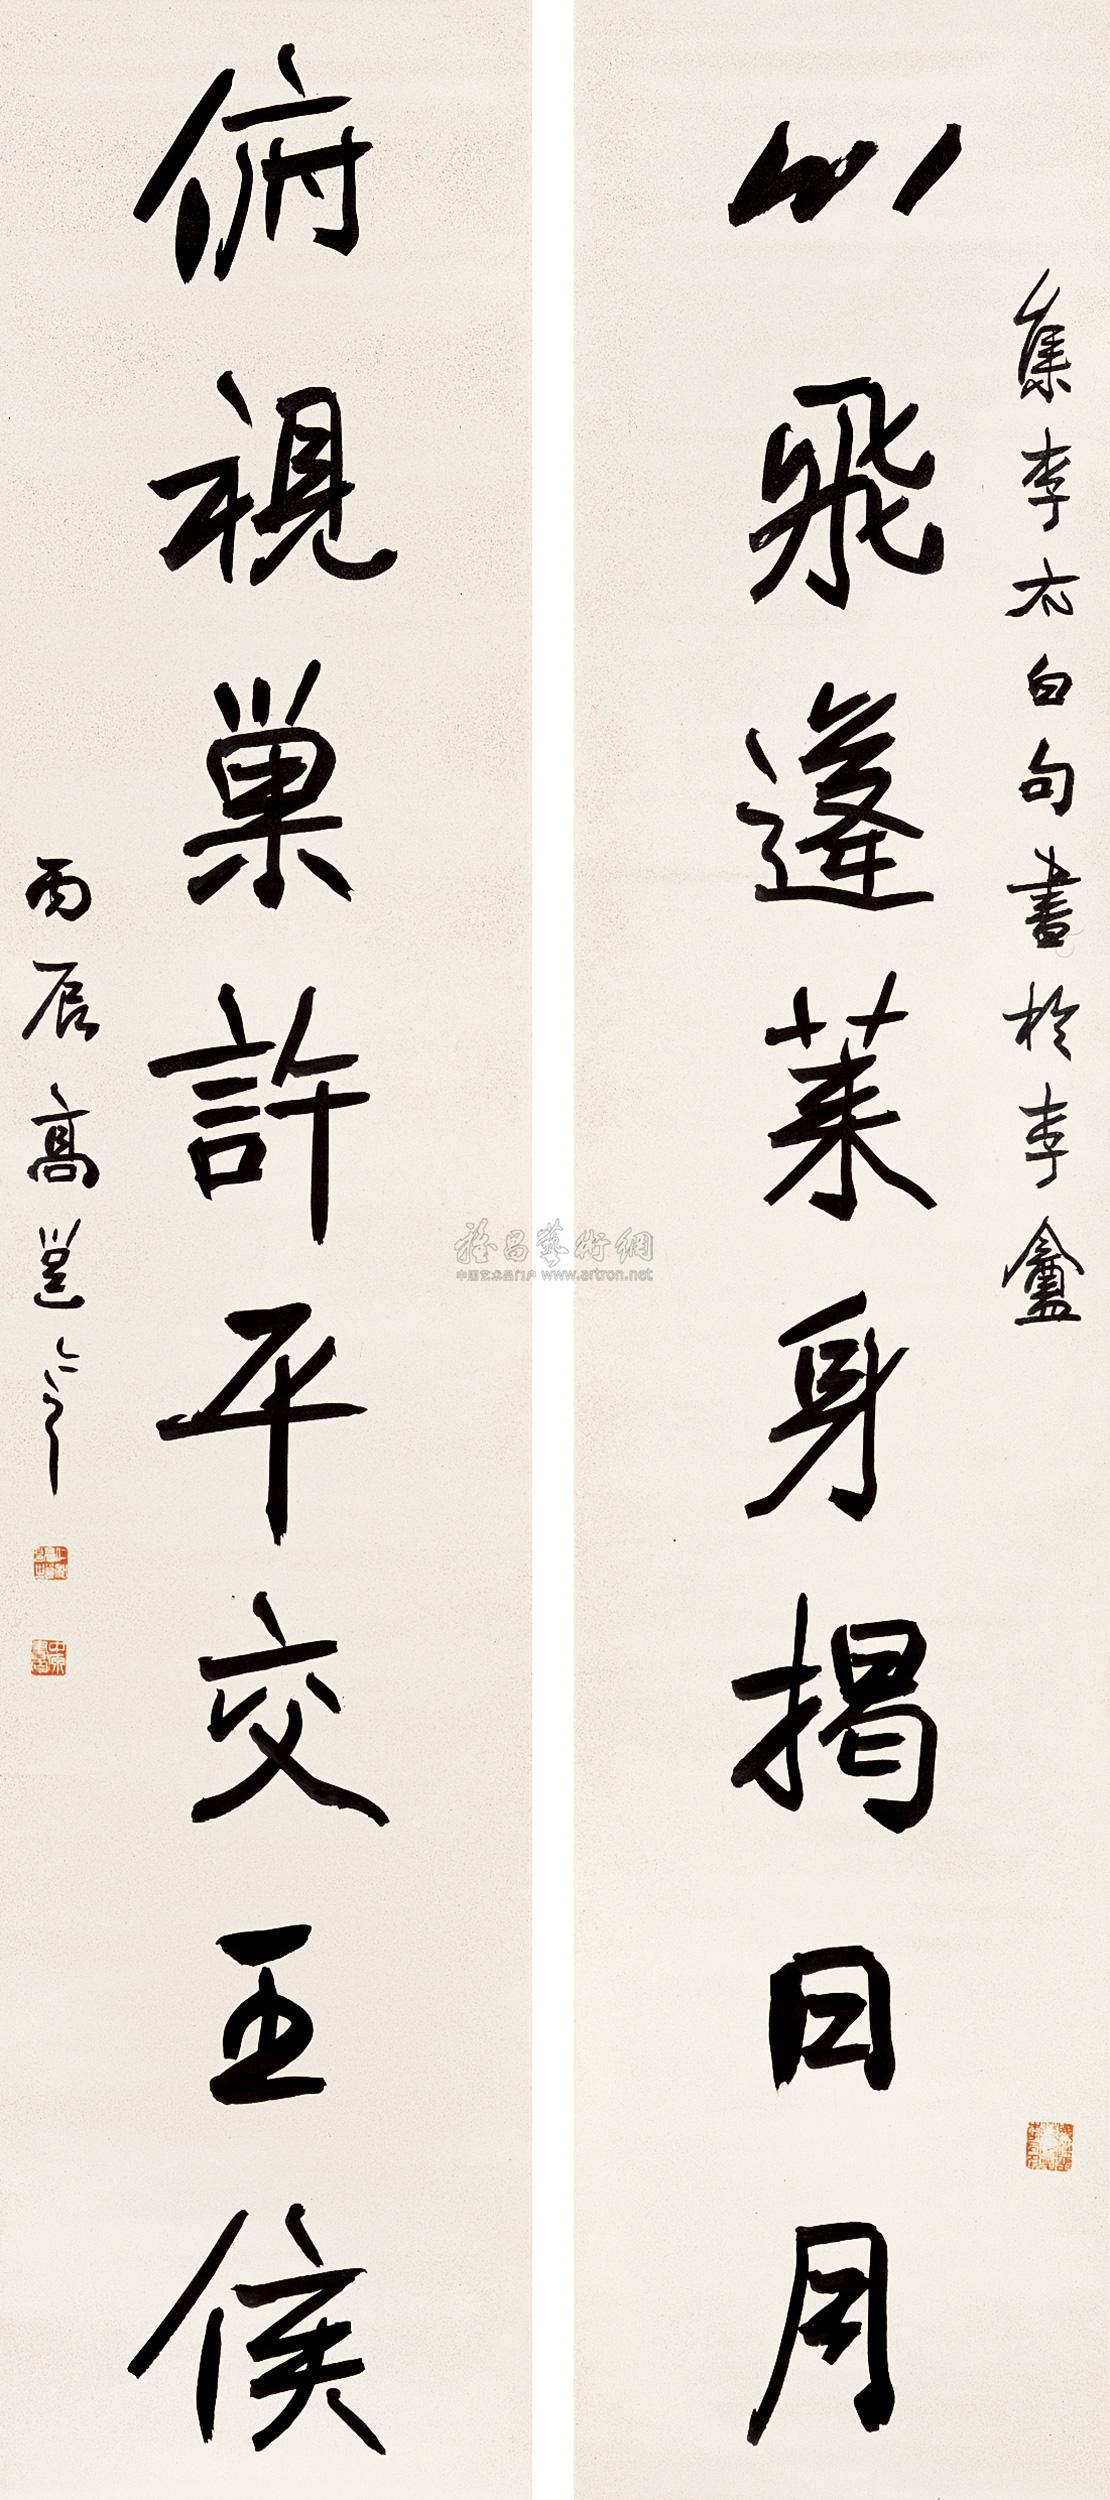 集李太白句書於李盦
心飛逢莱身揭日月
俯視巢許平交王侯
丙辰高邕
雅昌藝術網
中国艺术品门户 www.artron.net